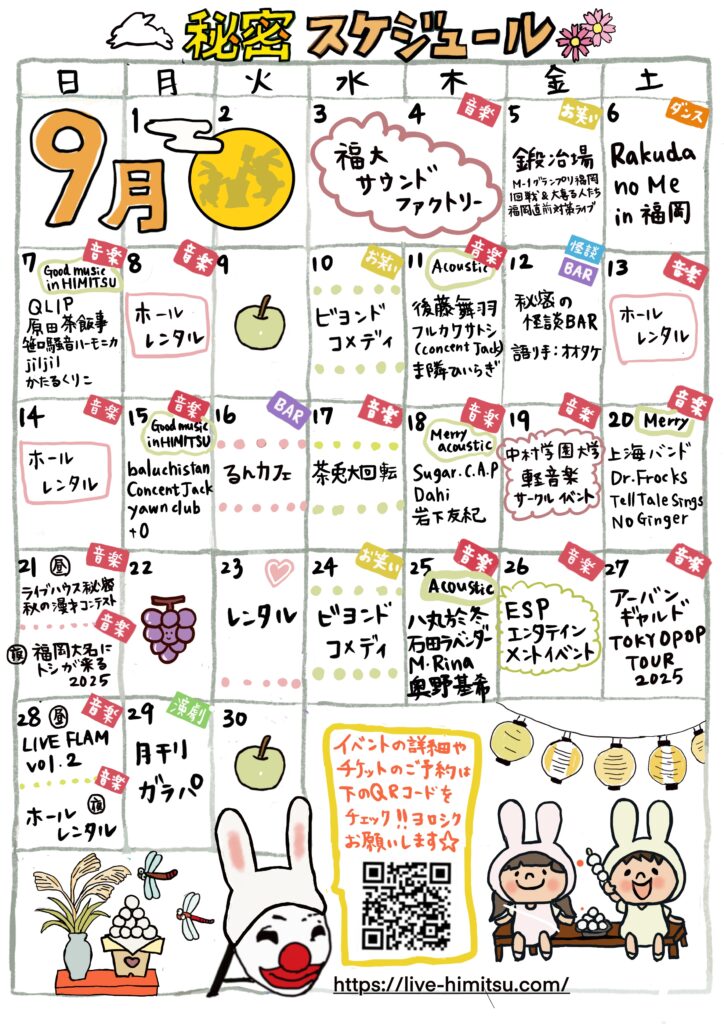 秘密 スケジュール
日 月 火 水 木 金 土
9月
1
2
3
4 音楽
福大
サウンド
ファクトリー
5 お笑い
鍛冶場
M-1グランプリ福岡
1回戦&大喜る人たち
福岡直前対策ライブ
6 ダンス
Rakuda
no Me
in 福岡
7 音楽
Good music
in HIMITSU
QLIP
原田茶飯事
笹口騒音ハーモニカ
jiljil
かたるくりこ
8 音楽
ホール
レンタル
9
10 お笑い
ビヨンド
コメディ
11 音楽
Acoustic
後藤舞羽
フルカワサトシ
(concent Jack)
ま隣ひいらぎ
12 怪談
BAR
秘密の
怪談BAR
語り手:オオタケ
13 音楽
ホール
レンタル
14 音楽
ホール
レンタル
15 音楽
Good music
in HIMITSU
baluchistan
Concent Jack
yawn club
+0
16 BAR
るんカフェ
17 音楽
茶兎大回転
18 音楽
Merry
acoustic
Sugar.C.A.P
Dahi
岩下友紀
19 音楽
中村学園大学
軽音楽
サークルイベント
20 音楽
Merry
上海バンド
Dr.Frocks
Tell Tale Sings
No Ginger
21 昼 音楽
ライブハウス秘密
秋の漫才コンテスト
音楽
夜 福岡大名に
トシが来る
2025
22
23
レンタル
24 お笑い
ビヨンド
コメディ
25 音楽
Acoustic
石田ラベンダー
M.Rina
奥野基希
26 音楽
ESP
エンタテイン
メントイベント
27 音楽
アーバン
ギャルド
TOKYOPOP
TOUR
2025
28 昼 音楽
LIVE FLAM
vol.2
音楽
ホール 夜
レンタル
29 演劇
月刊
ガラパ
30
イベントの詳細や
チケットのご予約は
下のQRコードを
チェック!!ヨロシク
お願いします☆
https://live-himitsu.com/